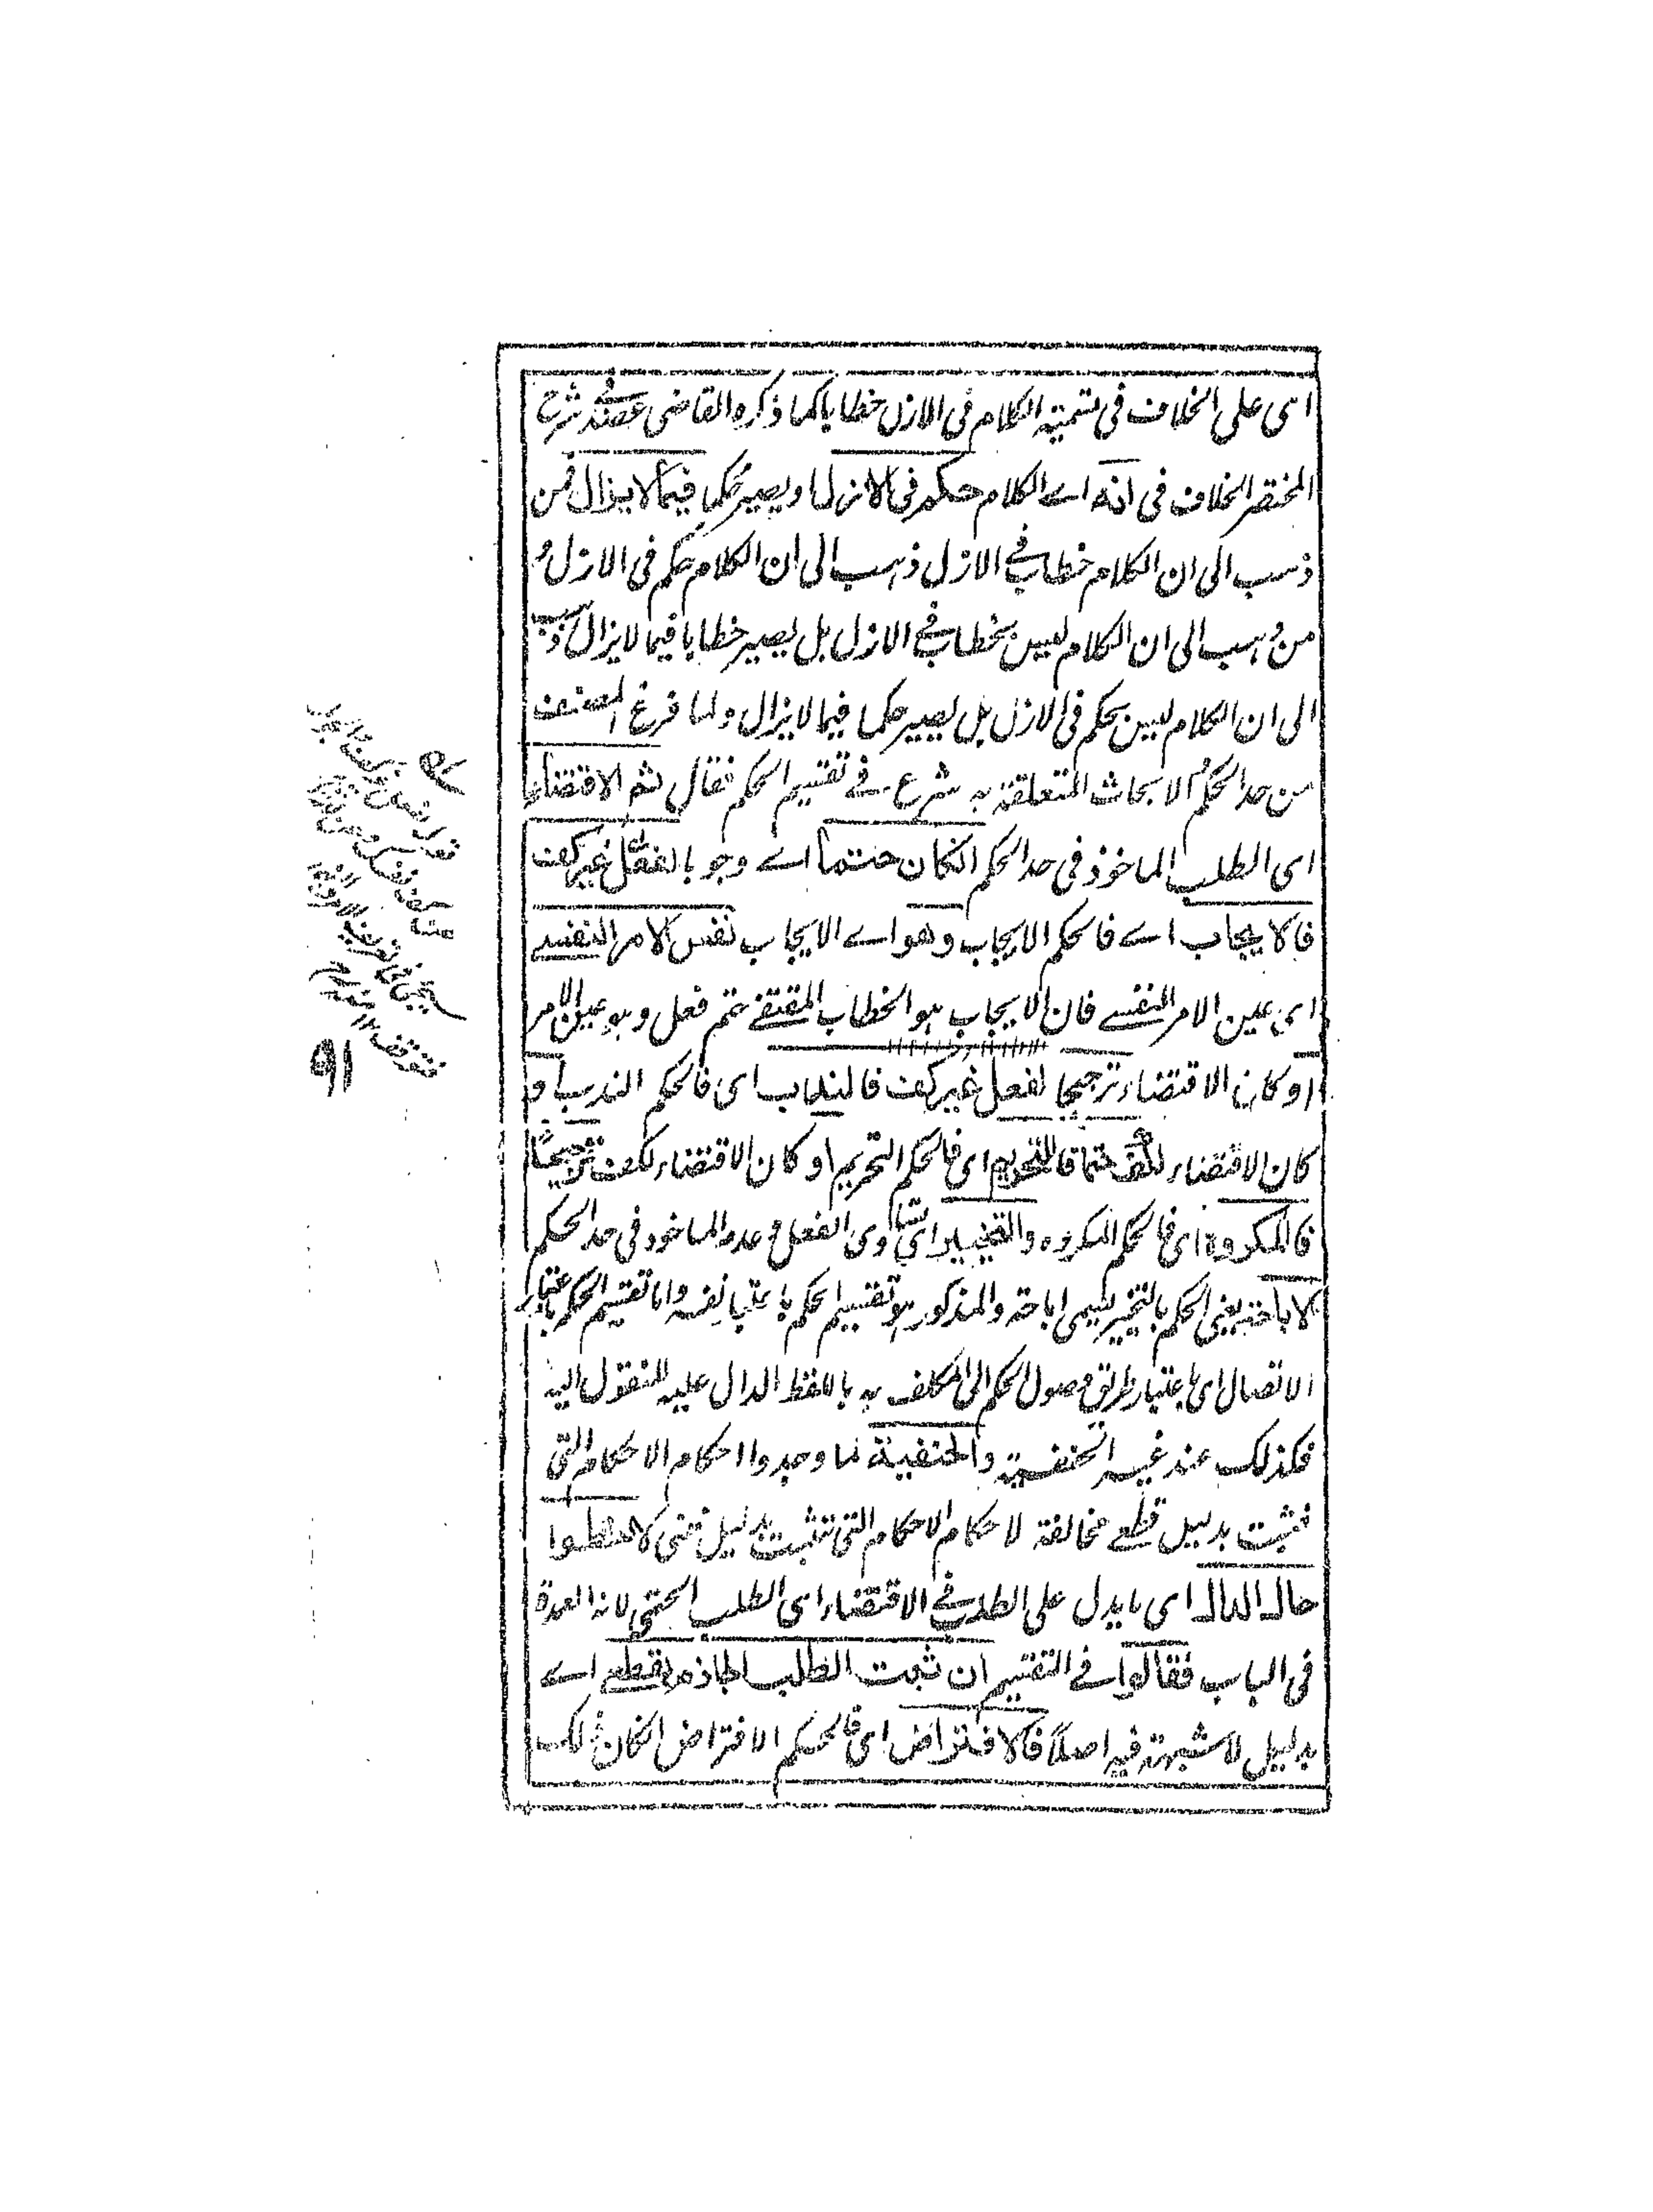 اى على الخلاف فى تسمية الكلام فى الازل خطابا كما ذكره القاضى عضد فے شرح
المختصر الخلاف فى انه اے الكلام حكم فى الازل او يصير حكما فيما لا يزال فمن
ذهب الى ان الكلام خطاب فے الازل ذهب الى ان الكلام حكم فى الازل و
من ذهب الى ان الكلام ليس بخطاب فے الازل بل يصير خطابا فيما لا يزال ذهب
الى ان الكلام ليس بحكم فى الازل بل يصير حكما فيما لا يزال ولما فرغ المصنف
من حد الحكم و الابحاث المتعلقة به شرع فے تقسيم الحكم فقال ثم الاقتضاء
اى الطلب الماخوذ فى حد الحكم ان كان حتما اے وجوبا لفعل غير كف
فالايجاب اے فالحكم الايجاب وهو اے الايجاب نفس الامر النفسے
اى عين الامر النفسے فان الايجاب هو الخطاب المقتضے حتم فعل وهو عين الامر
او كان الاقتضاء ترجيحا لفعل غير كف فالندب اى فالحكم الندب او
كان الاقتضاء لكف حتما فالتحريم اى فالحكم التحريم او كان الاقتضاء لكف ترجيحًا
فالمكروه اى فالحكم المكروه والتخيير اى تساوى الفعل و عدمه الماخوذ فى حد الحكم
الاباحة يعنى الحكم بالتخيير يسمى اباحة والمذكور هو تقسيم الحكم باعتبار نفسه واما تقسيم الحكم باعتبار
الاتصال اى باعتبار طريق وصول الحكم الى المكلف به باللفظ الدال عليه المنقول اليه
فكذلك عند غير الحنفية والحنفية لما وجدوا احكام الاحكام التى
تثبت بدليل قطعے مخالفة لاحكام الاحكام التى تثبت بدليل ظنى لاحظوا
حال الدال اى ما يدل على الطلب فے الاقتضاء اى الطلب الحتمى لانه العمدة
فى الباب فقالوا فے التقسيم ان ثبت الطلب الجازم بقطعے اے
بدليل لا شبهة فيه اصلًا فالافتراض اى فالحكم الافتراض ان كان ذلك
۱۹